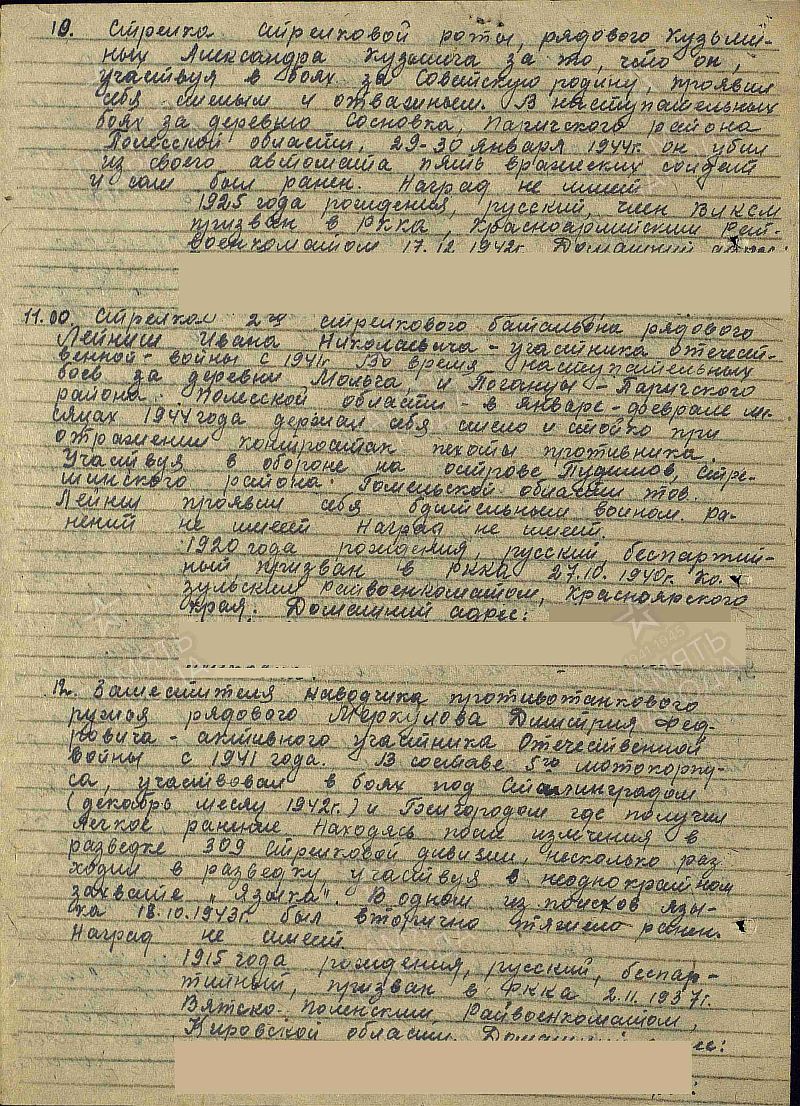 10. Стрелка стрелковой роты, рядового Кузьми-
ных Александра Кузьмича за то, что он,
участвуя в боях за Советскую родину, проявил
себя смелым и отважным. В наступательных
боях за деревню Сосновка, Паричского района
Полесской области, 29-30 января 1944г. он убил
из своего автомата пять вражеских солдат
и сам был ранен. Наград не имеет
1925 года рождения, русский, член ВЛКСМ
призван в РККА, Красноармейским Рай-
военкоматом 17.12.1942г. Домашний адрес:
11. Стрелка 2го стрелкового батальона рядового
Лейниш Ивана Николаевича - участника отечест-
венной войны с 1941г. Во время наступательных
боев за деревни Мольча и Поганцы - Паричского
района Полесской области - в январе - феврале ме-
сяцах 1944 года держал себя смело и стойко при
отражении контратак пехоты противника.
Участвуя в обороне на острове Стре-
шинского района Гомельской области тов.
Лейниш проявил себя бдительным воином. Ра-
нений не имеет Наград не имеет.
1920 года рождения, русский, беспартий-
ный призван в РККА 27.10.1940г. Ко-
зульским Райвоенкоматом, Красноярского
края. Домашний адрес:
12. Заместителя наводчика противотанкового
ружья рядового Меркулова Дмитрия Фед-
ровича - активного участника Отечественной
войны с 1941 года. В составе 5го мотокорпу-
са, участвовал в боях под Сталинградом
(декабрь месяц 1942г.) и где получил
легкое ранение Находясь после излечения в
разведке 309 стрелковой дивизии, несколько раз
ходил в разведку участвуя в неоднократном
захвате "Языка". В одном из поисков язы-
ка 18.10.1943г. был вторично тяжело ранен.
Наград не имеет
1915 года рождения, русский, беспар-
тийный, призван в РККА 2.11.1937г.
Вятско-Полянским Райвоенкоматом,
Кировской области. Домашний адрес: